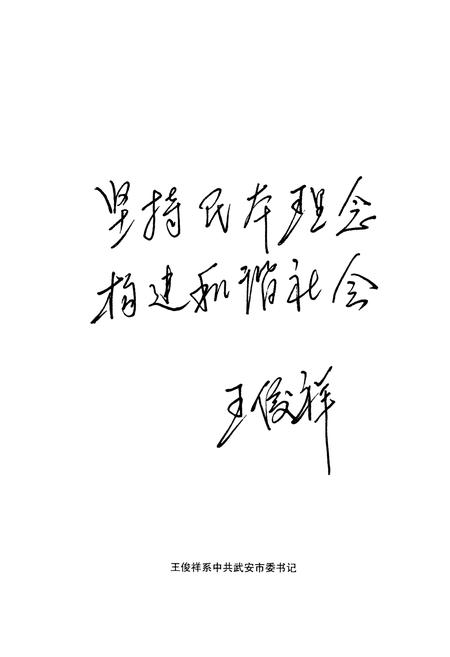 坚持民本理念
构建和谐社会
王俊祥
王俊祥系中共武安市委书记